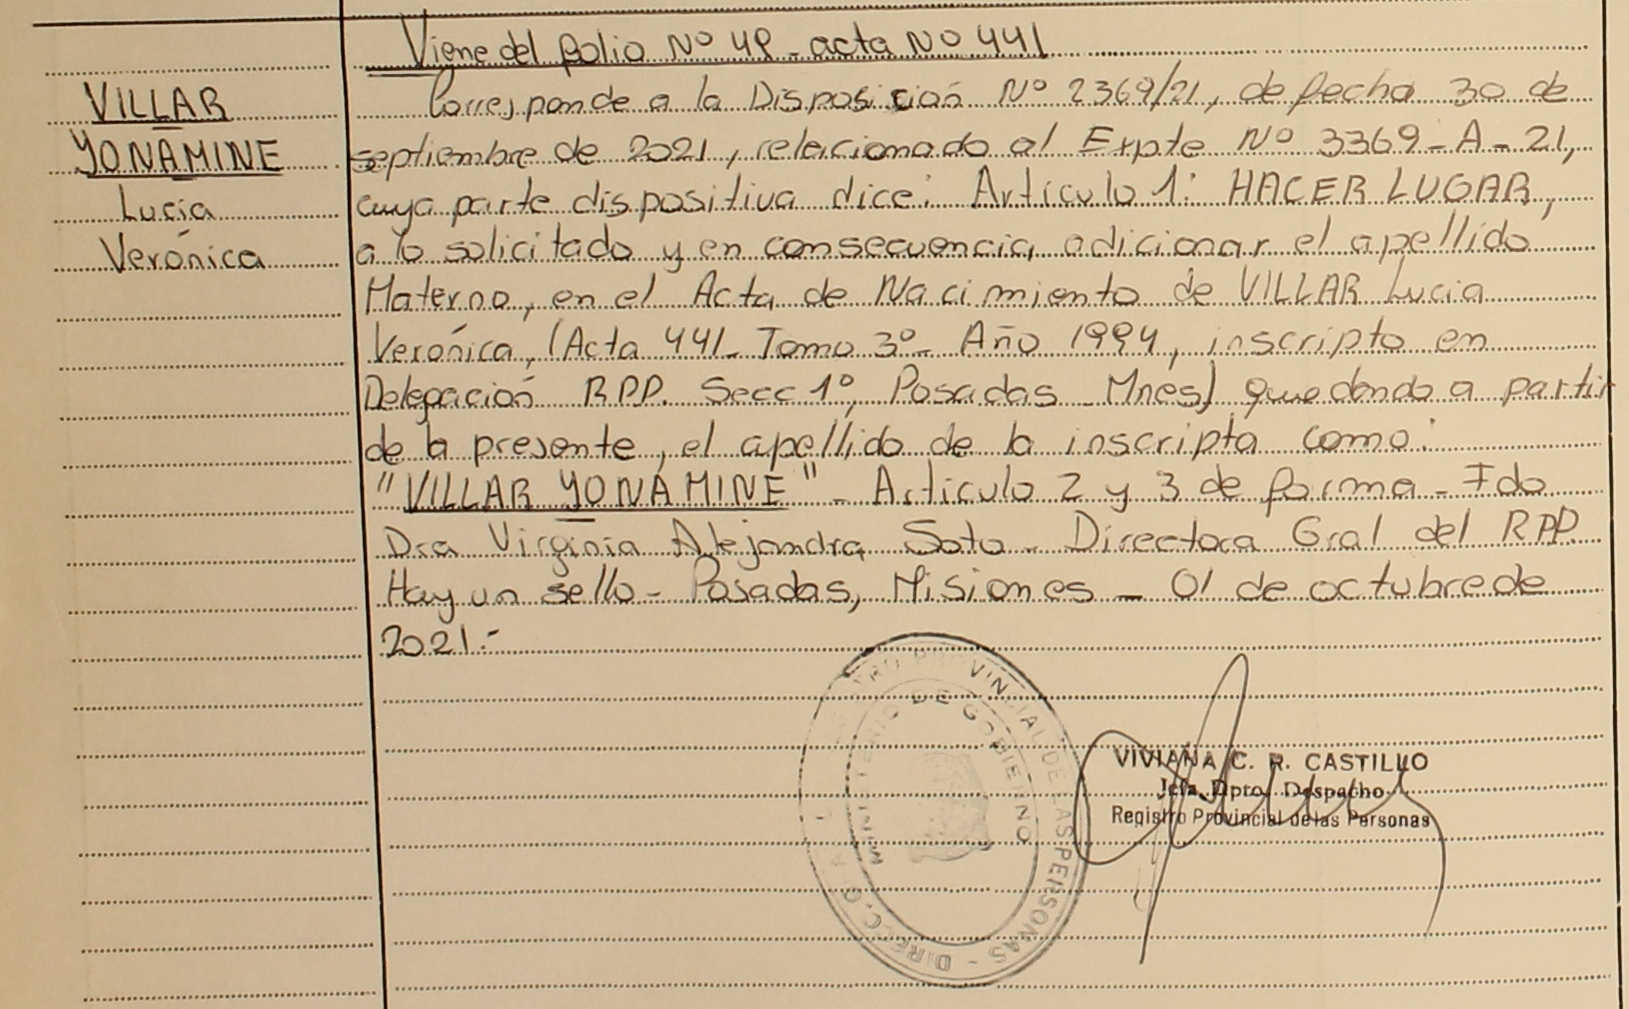 Viene del folio Nº 48 - acta Nº 441
VILLAR
YONAMINE
Lucía
Verónica
Corresponde a la Disposición Nº 2369/21, de fecha 30 de
septiembre de 2021, relacionado al Expte Nº 3369-A-21,
cuya parte dispositiva dice: Artículo 1: HACER LUGAR,
a lo solicitado y en consecuencia adicionar el apellido
Materno, en el Acta de Nacimiento de VILLAR Lucia
Verónica, (Acta 441- Tomo 3º- Año 1994, inscripto en
Delegación RPP. Secc 1º, Posadas Mnes) quedando a partir
de la presente, el apellido de la inscripta como:
"VILLAR YONAMINE" - Artículo 2 y 3 de forma - Fdo
Dra Virginia Alejandra Soto - Directora Gral del RPP.
Hay un sello - Posadas, Misiones - 01 de octubre de
2021.-
PROVINCIAL DE LAS PERSONAS - DIRECC. G
MINISTERIO DE GOBIERNO
VIVIANA C. R. CASTILLO
Jefa Dpto. Despacho
Registro Provincial de las Personas